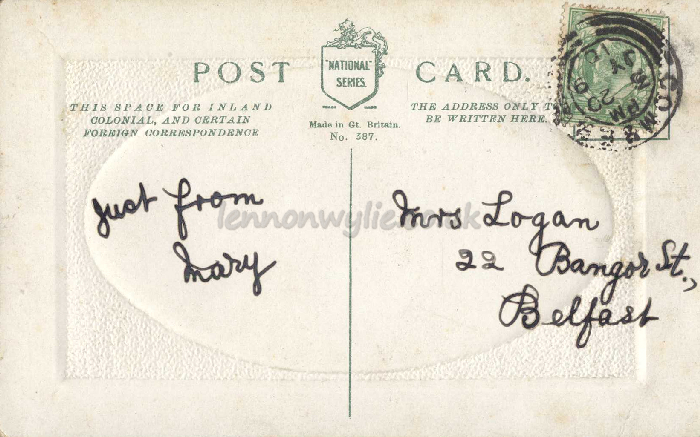 POST CARD.
"NATIONAL"
SERIES.
Made in Gt. Britain.
No. 387.
THIS SPACE FOR INLAND
COLONIAL, AND CERTAIN
FOREIGN CORRESPONDENCE
THE ADDRESS ONLY T
BE WRITTEN HERE.
just from
Mary
Mrs Logan
22 Bangor St.,
Belfast
lennonwylie.co.uk